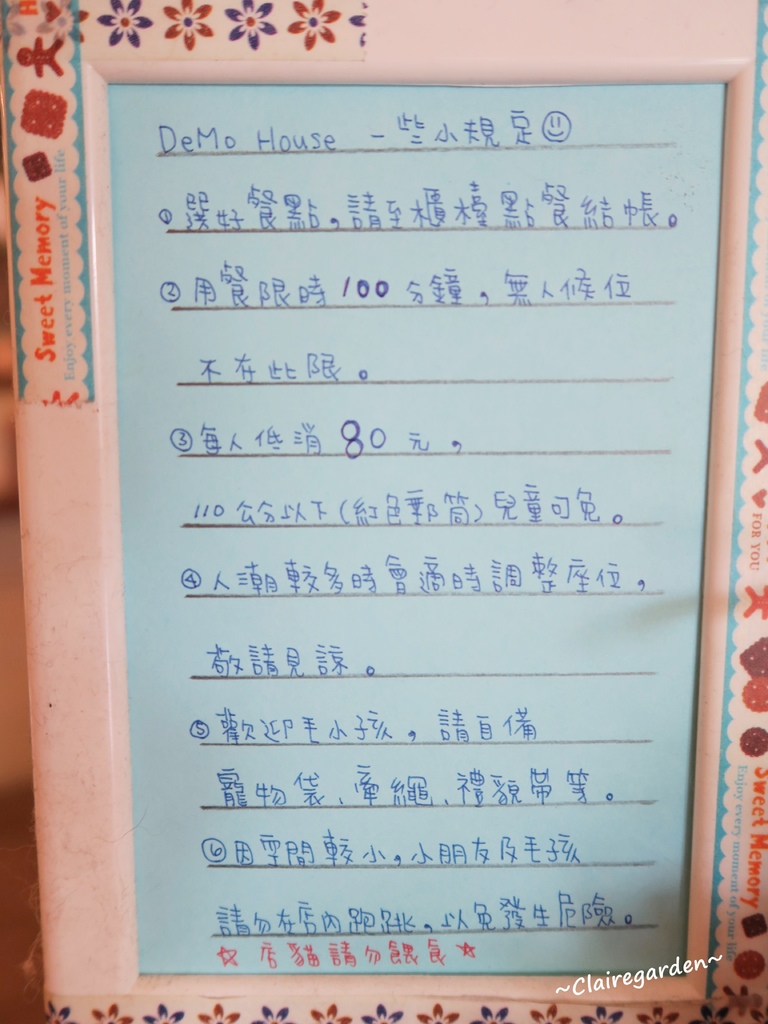 DeMo House 一些小規定
①選好餐點,請至櫃檯點餐結帳。
②用餐限時100分鐘,無人候位
不在此限。
③每人低消80元,
110公分以下(紅色郵筒)兒童可免。
④人潮較多時會適時調整座位,
敬請見諒。
⑤歡迎毛小孩,請自備
寵物袋、牽繩、禮貌帶等。
⑥因空間較小,小朋友及毛孩
請勿在店內跑跳,以免發生危險。
☆店貓請勿餵食☆
Sweet Memory
Enjoy every moment of your life
FOR YOU
Sweet Memory
Enjoy every moment of your life
~Clairegarden~